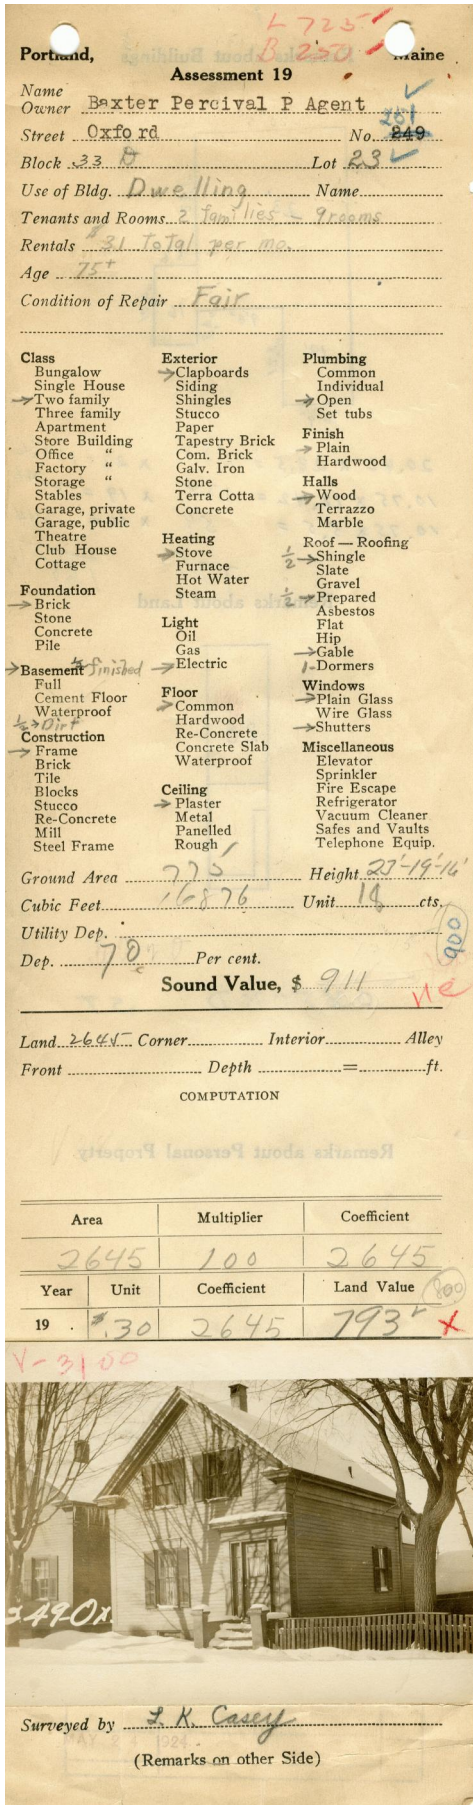 L 725
B 250
Portland, Maine
Assessment 19
Name
Owner Baxter Percival P Agent
251
Street Oxford No. 249
Block 33 D Lot 23
Use of Bldg. Dwelling Name
Tenants and Rooms 2 families - 9 rooms
Rentals $31 total per mo.
Age 75+
Condition of Repair Fair
Class
Bungalow
Single House
→Two family
Three family
Apartment
Store Building
Office "
Factory "
Storage "
Stables
Garage, private
Garage, public
Theatre
Club House
Cottage
Foundation
→Brick
Stone
Concrete
Pile
→Basement ½ finished
Full
Cement Floor
Waterproof
½→Dirt
Construction
→Frame
Brick
Tile
Blocks
Stucco
Re-Concrete
Mill
Steel Frame
Exterior
→Clapboards
Siding
Shingles
Stucco
Paper
Tapestry Brick
Com. Brick
Galv. Iron
Stone
Terra Cotta
Concrete
Heating
→Stove
Furnace
Hot Water
Steam
Light
Oil
Gas
→Electric
Floor
→Common
Hardwood
Re-Concrete
Concrete Slab
Waterproof
Ceiling
→Plaster
Metal
Panelled
Rough
Plumbing
Common
Individual
→Open
Set tubs
Finish
→Plain
Hardwood
Halls
→Wood
Terrazzo
Marble
Roof — Roofing
½→Shingle
Slate
Gravel
½→Prepared
Asbestos
Flat
Hip
→Gable
1-Dormers
Windows
→Plain Glass
Wire Glass
→Shutters
Miscellaneous
Elevator
Sprinkler
Fire Escape
Refrigerator
Vacuum Cleaner
Safes and Vaults
Telephone Equip.
Ground Area 775 Height 23'-19'-16'
Cubic Feet 16876 Unit 18 cts.
Utility Dep.
900
Dep. 70 Per cent.
Sound Value, $ 911
Land 2645 Corner Interior Alley
Front Depth = ft.
COMPUTATION
Area Multiplier Coefficient
2645 100 2645
Year Unit Coefficient Land Value 800
19 . $.30 2645 793 X
V-3100
Surveyed by L. K. Casey
(Remarks on other Side)